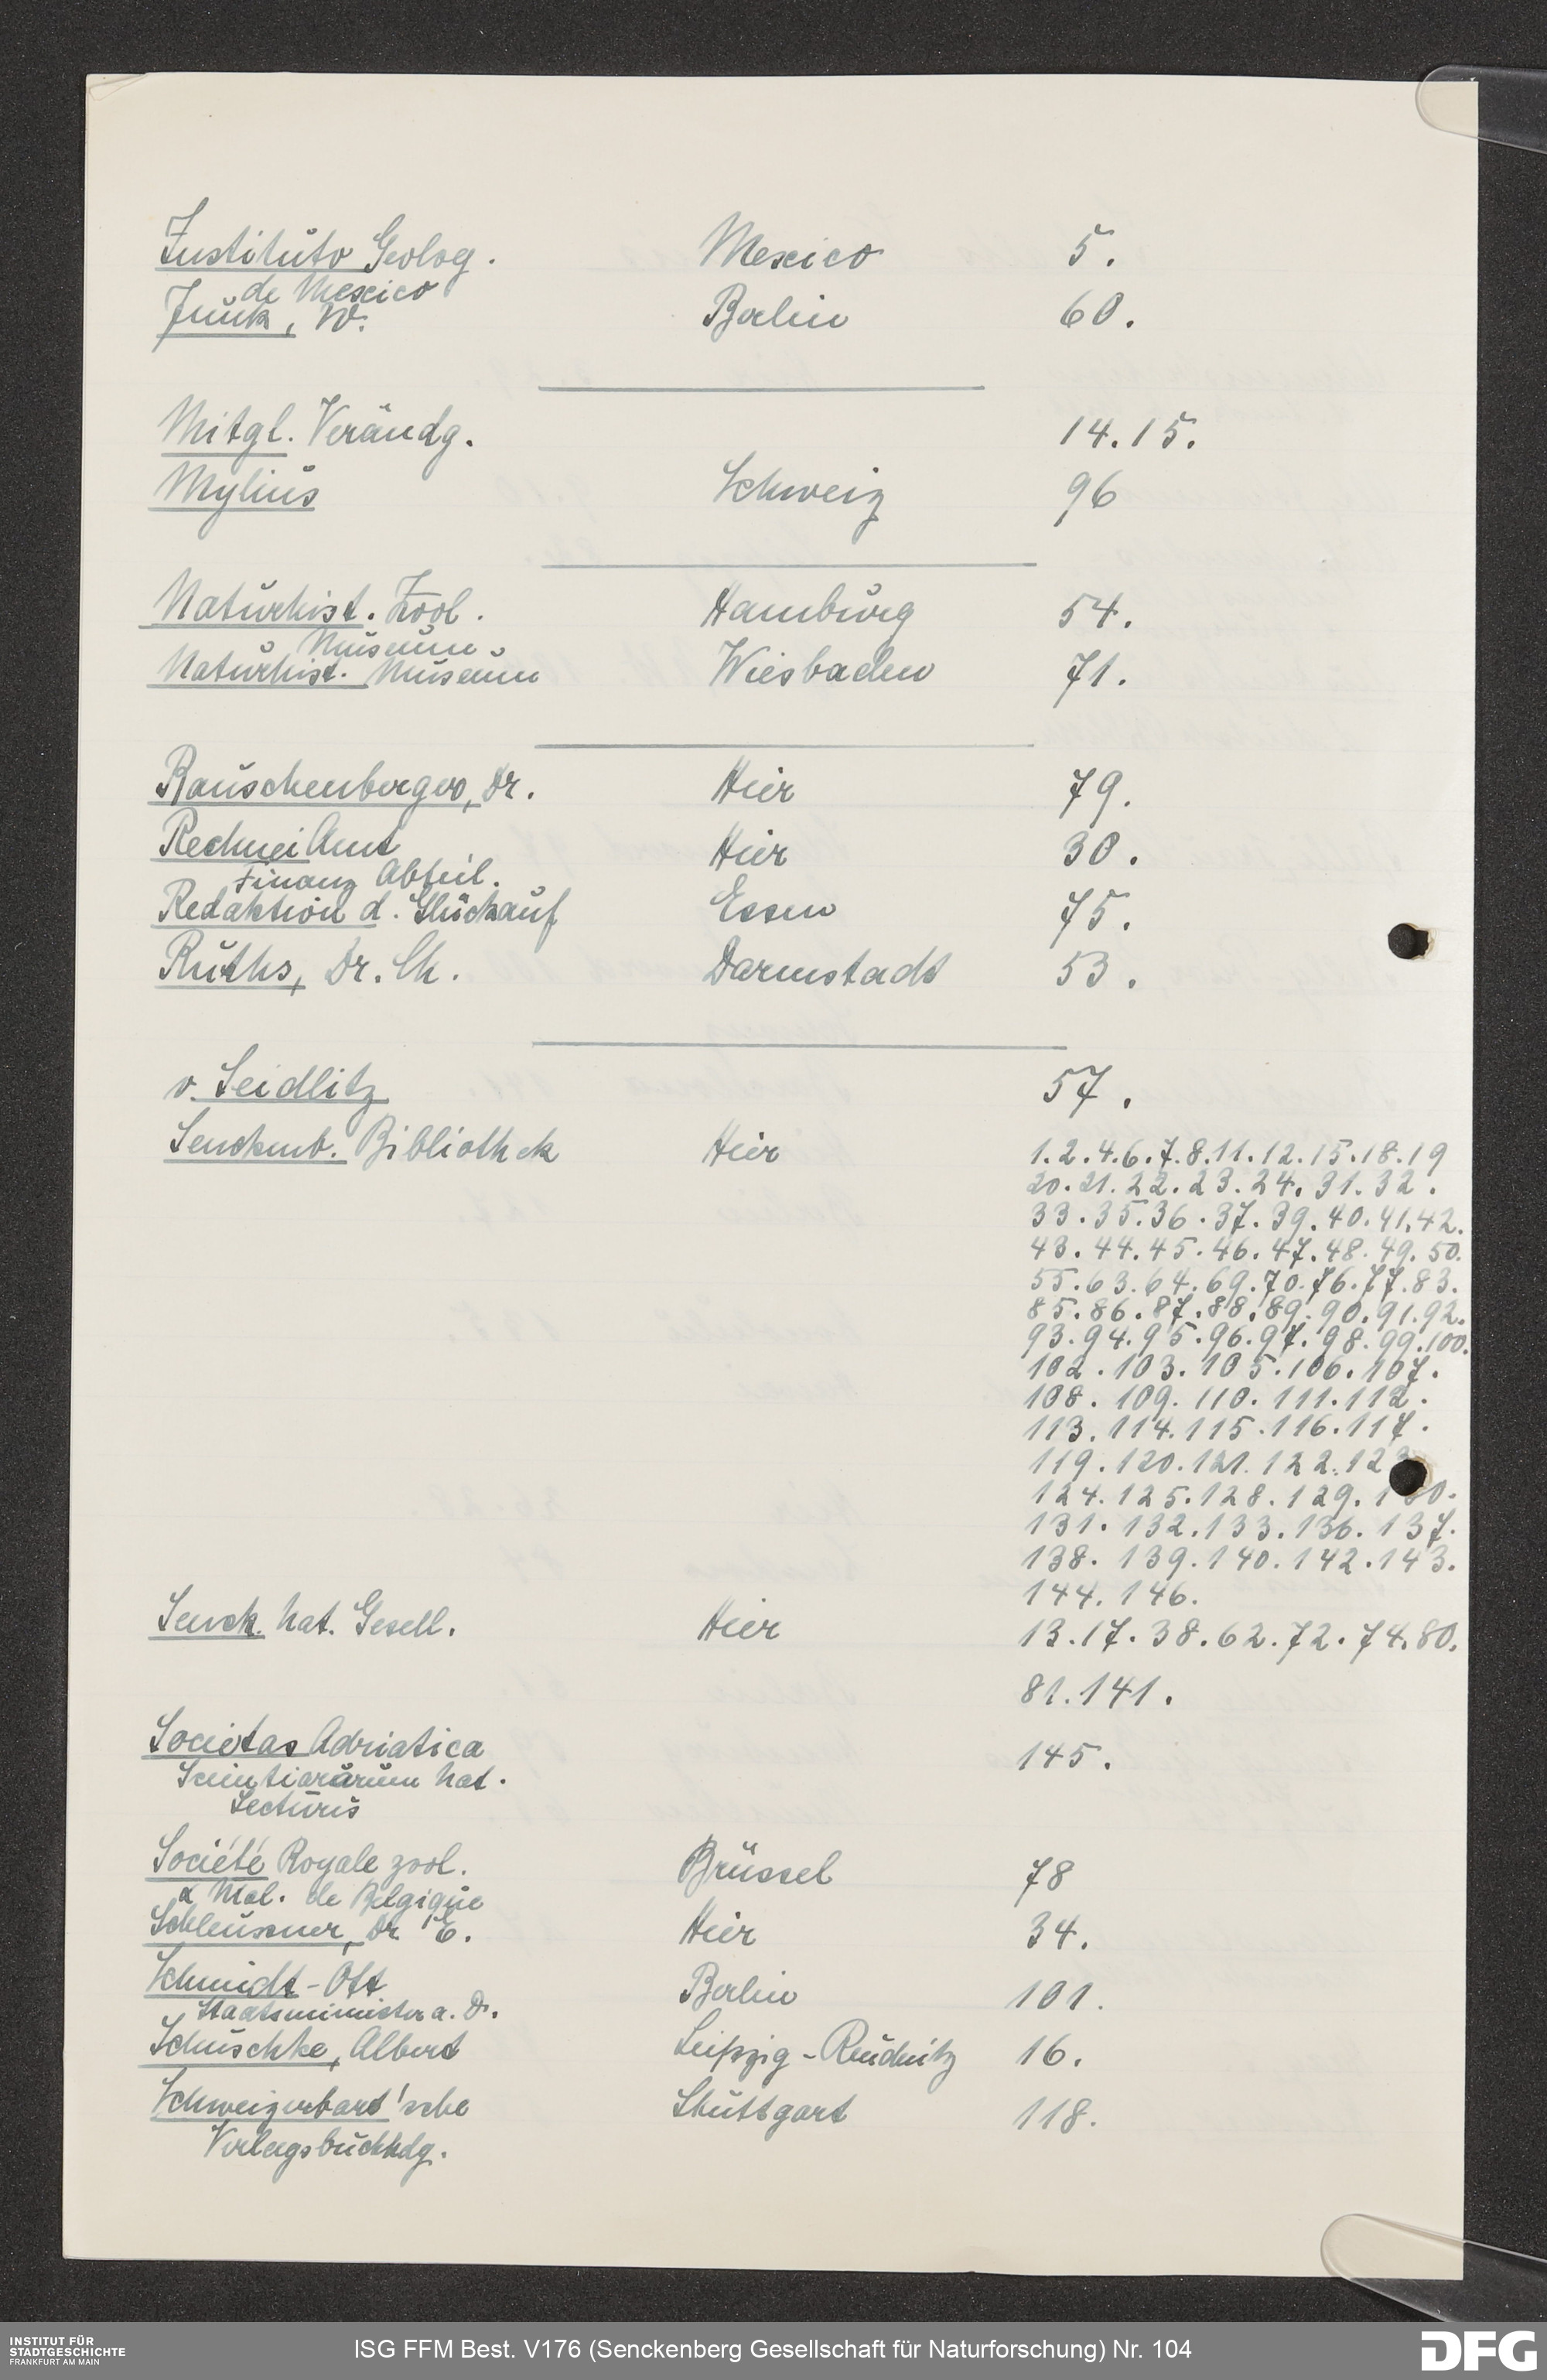 Instituto Geolog. Mexico 5.
de Mexico
Junk, W. Berlin 60.
Mitgl. Verändg. 14.15.
Mylius Schweiz 96
Naturhist. Zool. Hamburg 54.
Museum
Naturhist. Museum Wiesbaden 71.
Rauschenberger, Dr. Hier 79.
Rechnei Amt Hier 30.
Finanz Abteil.
Redaktion d. Glückauf Essen 75.
Ruths, Dr. Ch. Darmstadt 53.
v. Seidlitz 57.
Senckenb. Bibliothek Hier 1.2.4.6.7.8.11.12.15.18.19
20.21.22.23.24.31.32.
33.35.36.37.39.40.41.42.
43.44.45.46.47.48.49.50.
55.63.64.69.70.76.77.83.
85.86.87.88.89.90.91.92.
93.94.95.96.97.98.99.100.
102.103.105.106.107.
108.109.110.111.112.
113.114.115.116.117.
119.120.121.122.123
124.125.128.129.130.
131.132.133.136.137.
138.139.140.142.143.
144.146.
Senck. nat. Gesell. Hier 13.17.38.62.72.74.80.
81.141.
Societas Adriatica 145.
Scientiarurum nat.
Lecturis
Société Royale zool. Brüssel 78
& Mal. de Belgique
Schleussner, Dr E. Hier 34.
Schmidt-Ott Berlin 101.
Staatsminister a. D.
Schuschke, Albert Leipzig-Reudnitz 16.
Schweizerbart'sche Stuttgart 118.
Verlagsbuchhdg.
INSTITUT FÜR
STADTGESCHICHTE
FRANKFURT AM MAIN
ISG FFM Best. V176 (Senckenberg Gesellschaft für Naturforschung) Nr. 104
DFG